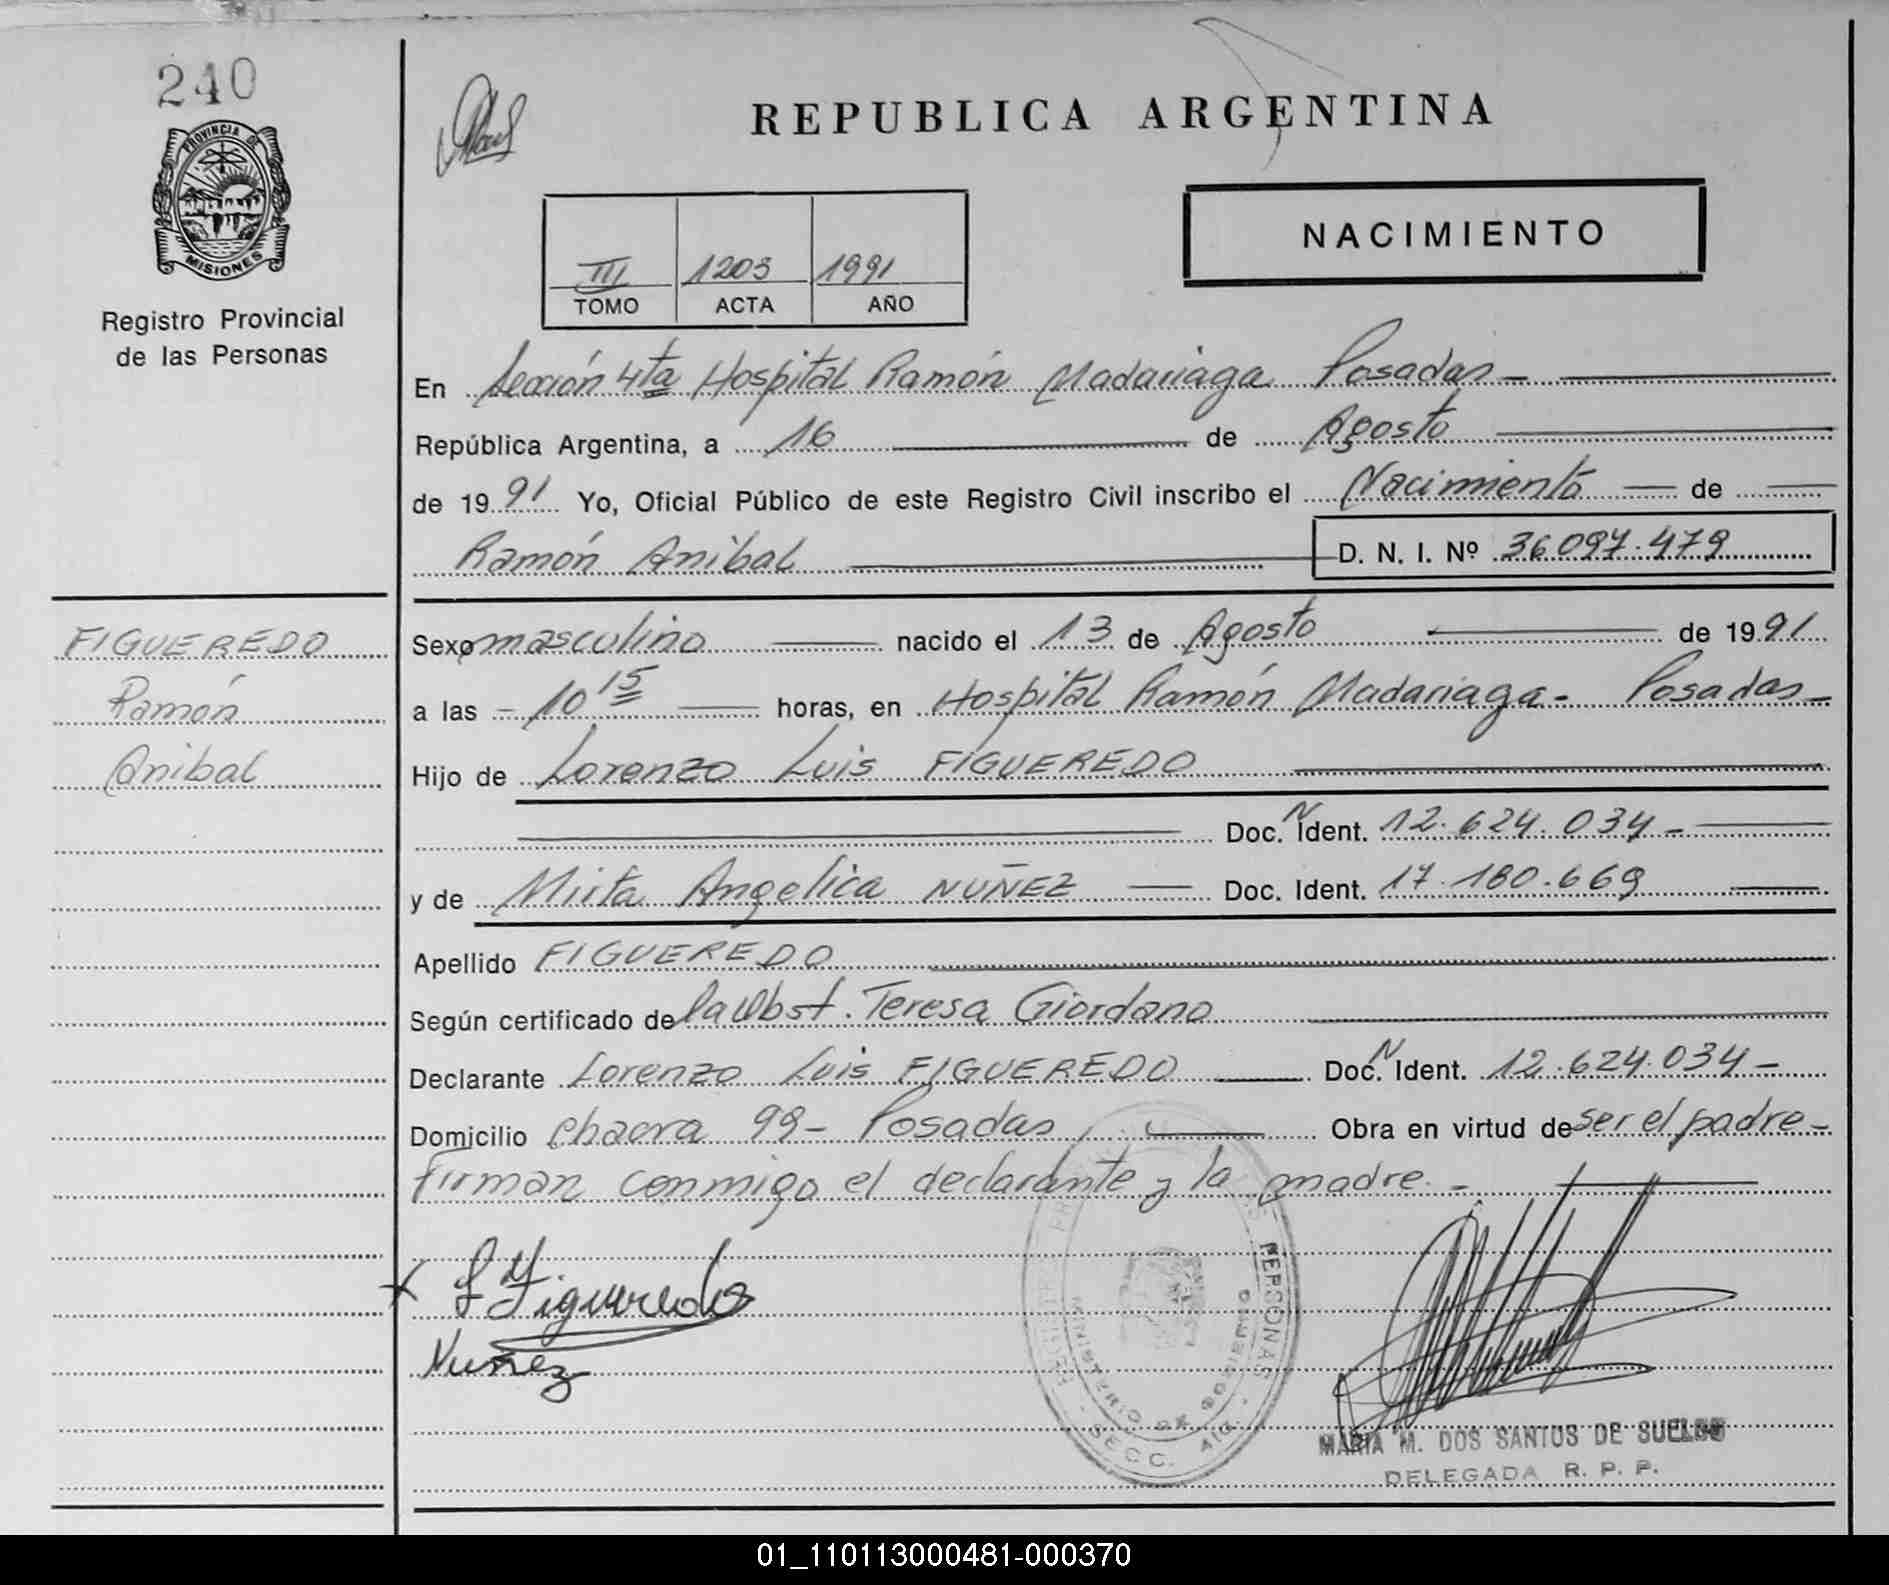 240
PROVINCIA DE
MISIONES
Registro Provincial
de las Personas
REPUBLICA ARGENTINA
NACIMIENTO
III 1203 1991
TOMO ACTA AÑO
En Sección 4ta Hospital Ramón Madariaga Posadas -
República Argentina, a 16 de Agosto
de 1991 Yo, Oficial Público de este Registro Civil inscribo el Nacimiento de
Ramón Anibal D. N. I. Nº 36.097.479
FIGUEREDO
Ramón
Anibal
Sexo masculino nacido el 13 de Agosto de 1991
a las - 10 15 horas, en Hospital Ramón Madariaga - Posadas -
Hijo de Lorenzo Luis FIGUEREDO
Doc. N Ident. 12.624.034 -
y de Mirta Angelica NUÑEZ Doc. Ident. 17.180.669
Apellido FIGUEREDO
Según certificado de la Obst. Teresa Giordano
Declarante Lorenzo Luis FIGUEREDO Doc. N Ident. 12.624.034 -
Domicilio Chacra 99 - Posadas Obra en virtud de ser el padre -
Firman conmigo el declarante y la madre. -
L Figueredo
Nuñez
PERSONAS
MINISTERIO DE GOBIERNO
SECC. 4ta.
MARIA M. DOS SANTOS DE
DELEGADA R. P. P.
01_110113000481-000370